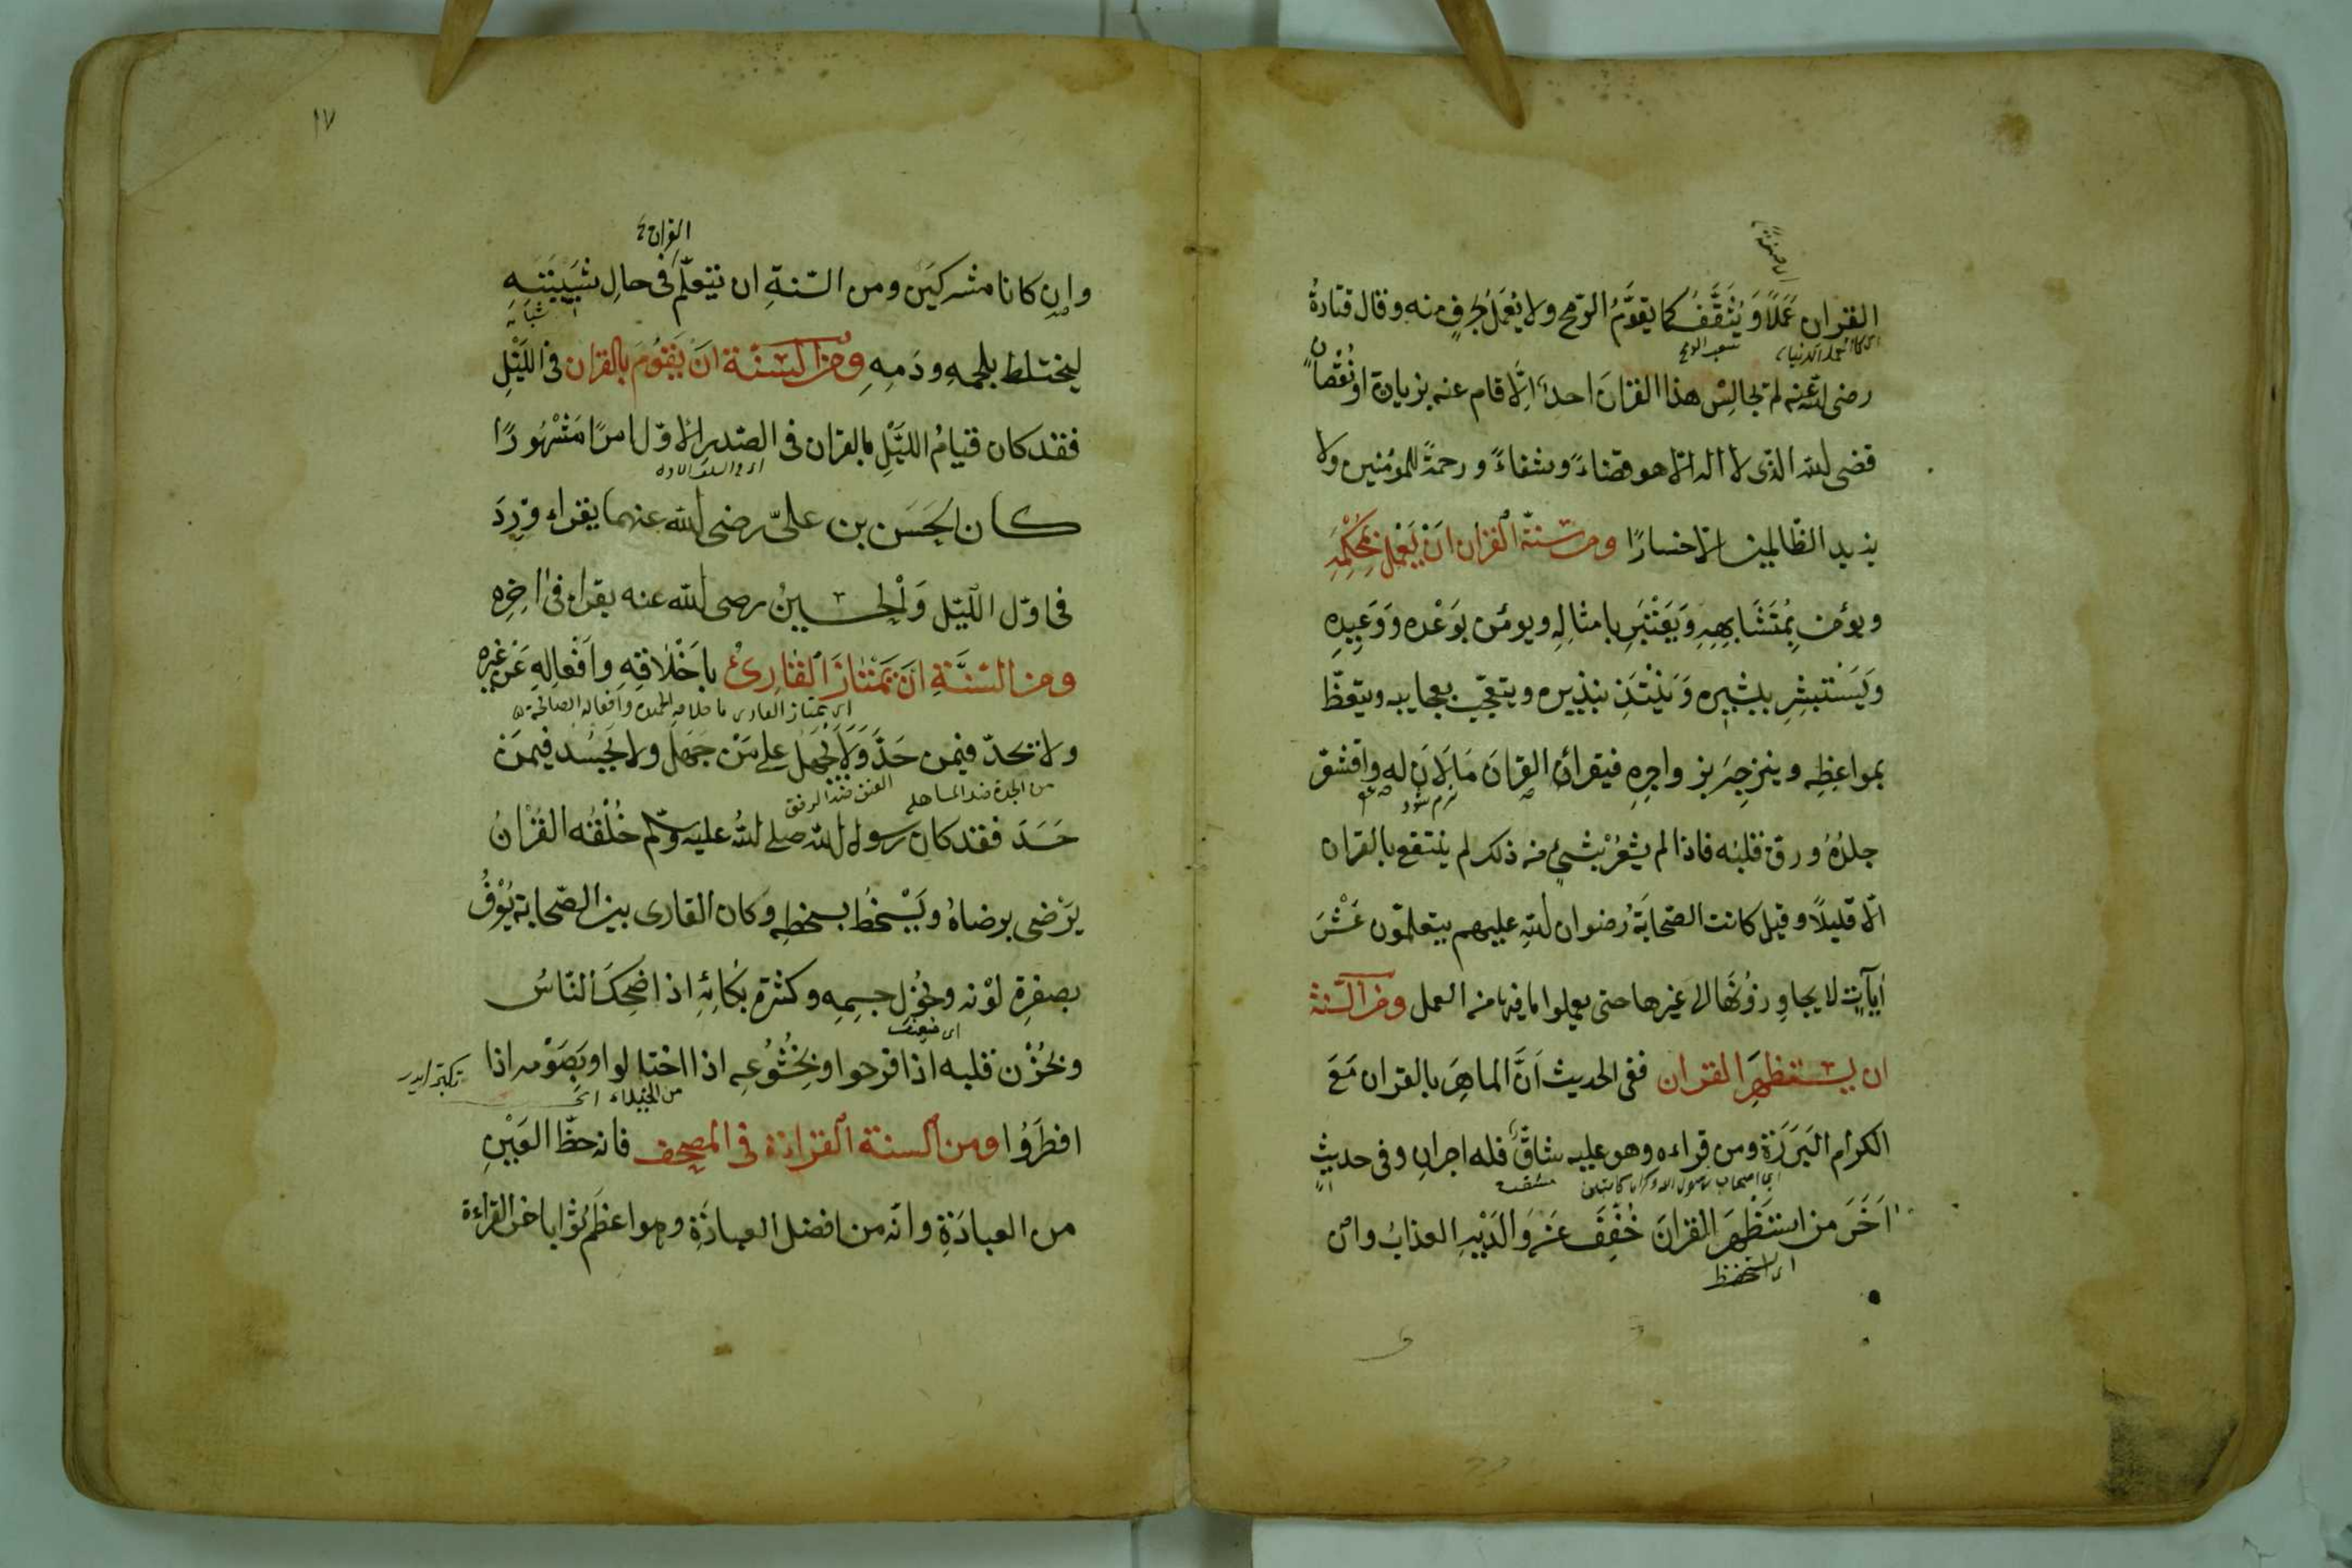 القران عَمَلًا وَيُثَقَّفُ كما يقوَّمُ الرّمح ولا يُعْمَلُ بحرفٍ منه وقال قتادةُ
رضى الله عنه لم يجالِسْ هذا القرانَ احدٌ الّا قام عنه بزيادة او نُقْصانٍ
قضى الله الذى لا اله الّا هو قضاءً وشفاءً ورحمةً للمؤمنين ولا
يزيد الظّالمين الّا خسارًا ومن سنّة القران ان يَعْمَلَ بمُحْكَمِهِ
ويؤمن بِمُتَشَابِهِهِ وَيَعْتَبِرَ بامثالِهِ ويؤمن بوَعْده وَوَعِيدِهِ
وَيَسْتَبشِرِ بتبشيره وَيَنْتَذِر بنذيره ويتعجّب بعجايبه ويتّعظ
بمواعِظِه وينزجِرَ بزواجِرِهِ فيقرأ القرانَ مَا لَانَ له واقشعّر
نرم شود
جلدُهُ ورق قلبُه فاذا لم يشعُرْ بشىءٍ من ذلك لم ينتفع بالقران
الّا قليلًا وقيل كانت الصّحابَةُ رضوان الله عليهم يتعلمّون عَشْرَ
اٰياٰتٍ لا يجاوِزونَها الى غيرها حتى يعملوا بما فيها من العمل ومن السّنّة
ان يستظهِرَ القران ففى الحديث اَنَّ الماهِرَ بالقران مَعَ
الكرام البَرَرَةِ ومن قراءه وهو عليه شاقٌّ فله اجرانِ وفى حديثٍ
اٰخَرَ من استَظْهَرَ القرانَ خُفِّفَ عَنْ وَالدَيْهِ العذابُ وان
اى استحفظ
١٧
القران
وان كانا مشركَيْن ومن السّنةِ ان يتعلّمَ فى حالِ شَبِيبَتِهِ
ليختلط بلحمِهِ ودَمِهِ ومن السّنّة انْ يَقُومَ بالقران فى اللَيْلِ
فقد كان قيامُ الليَّلِ بالقران فى الصّدرِ الاوّل امرًا مَشْهُورًا
كان الحَسَن بن علىّ رضى الله عنهما يقراء وِرْدَهُ
فى اوّل اللّيل وَالْحسينُ رضى الله عنه يقراء فى اٰخِرِه
ومن السّنَّةِ اَنْ يَمْتَازَ القَارِئُ باَخْلَاقِهِ وافعالِهِ عَنْ غيره
اى يمتاز القارى باخلاقه الحميدة وافعاله الصالحة
ولا يحدّ فيمن حَدَّ وَلَا يَجْهَلُ على مَنْ جَهَلَ ولا يَحْسُد فيمَنْ
من الحدة ضد المساهلة العنف ضد الرفق
حَسَدَ فقد كان رسول الله صلى الله عليه وسلّم خُلْقُه القُرْانُ
يَرْضى برضاهُ ويَسْخَطُ بسخطِهِ وكان القارى بين الصّحابة يُعْرَفُ
بصفرةِ لَوْنه ونُحُولِ جسِمِه وكثرة بكائِهِ اذا ضَحِكَ النّاسُ
اى ضعف
وبحُزْن قلبه اذا فرحوا وبخُشُوعِه اذا اختالوا وبِصَوْمه اذا
من الخيلاء
افطَرُوا ومن السنّة القراءَة فى المصحف فانه حظّ العَيْنِ
من العبادَةِ وانّه من افضل العبادَةِ وهو اعظَم ثوابا من القراءة